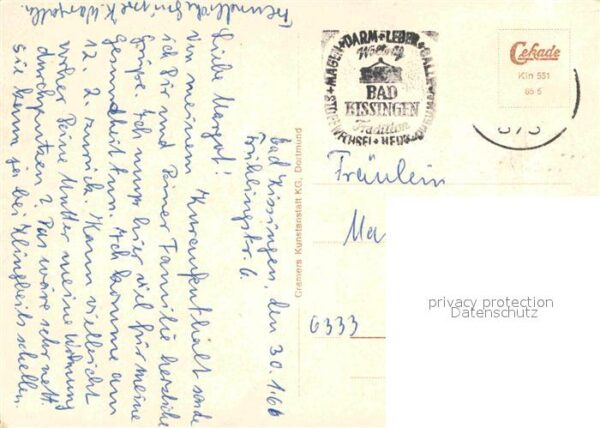 Bad Kissingen, den 30.1.66
Frühlingstr. 6.
Liebe Margut!
Von meinem Kuraufenthalt sende
ich Dir und Deiner Familie herzliche
Grüße. Ich muss hier viel für meine
Gesundheit tun. Ich komme am
12. 2. zurück. Kann vielleicht
vorher Deine Mutter meine Wohnung
durchputzen? Das wäre sehr nett.
Sie kann ja bei Klingbeils schellen.
Freundliche Grüsse K.
Cramers Kunstanstalt KG, Dortmund
MAGEN + DARM + LEBER + GALLE
STOFFWECHSEL + HERZ
Weltruf
BAD
KISSINGEN
Tradition
Cekade
Kin 551
65 5
Fräulein
Ma
6333
privacy protection
Datenschutz